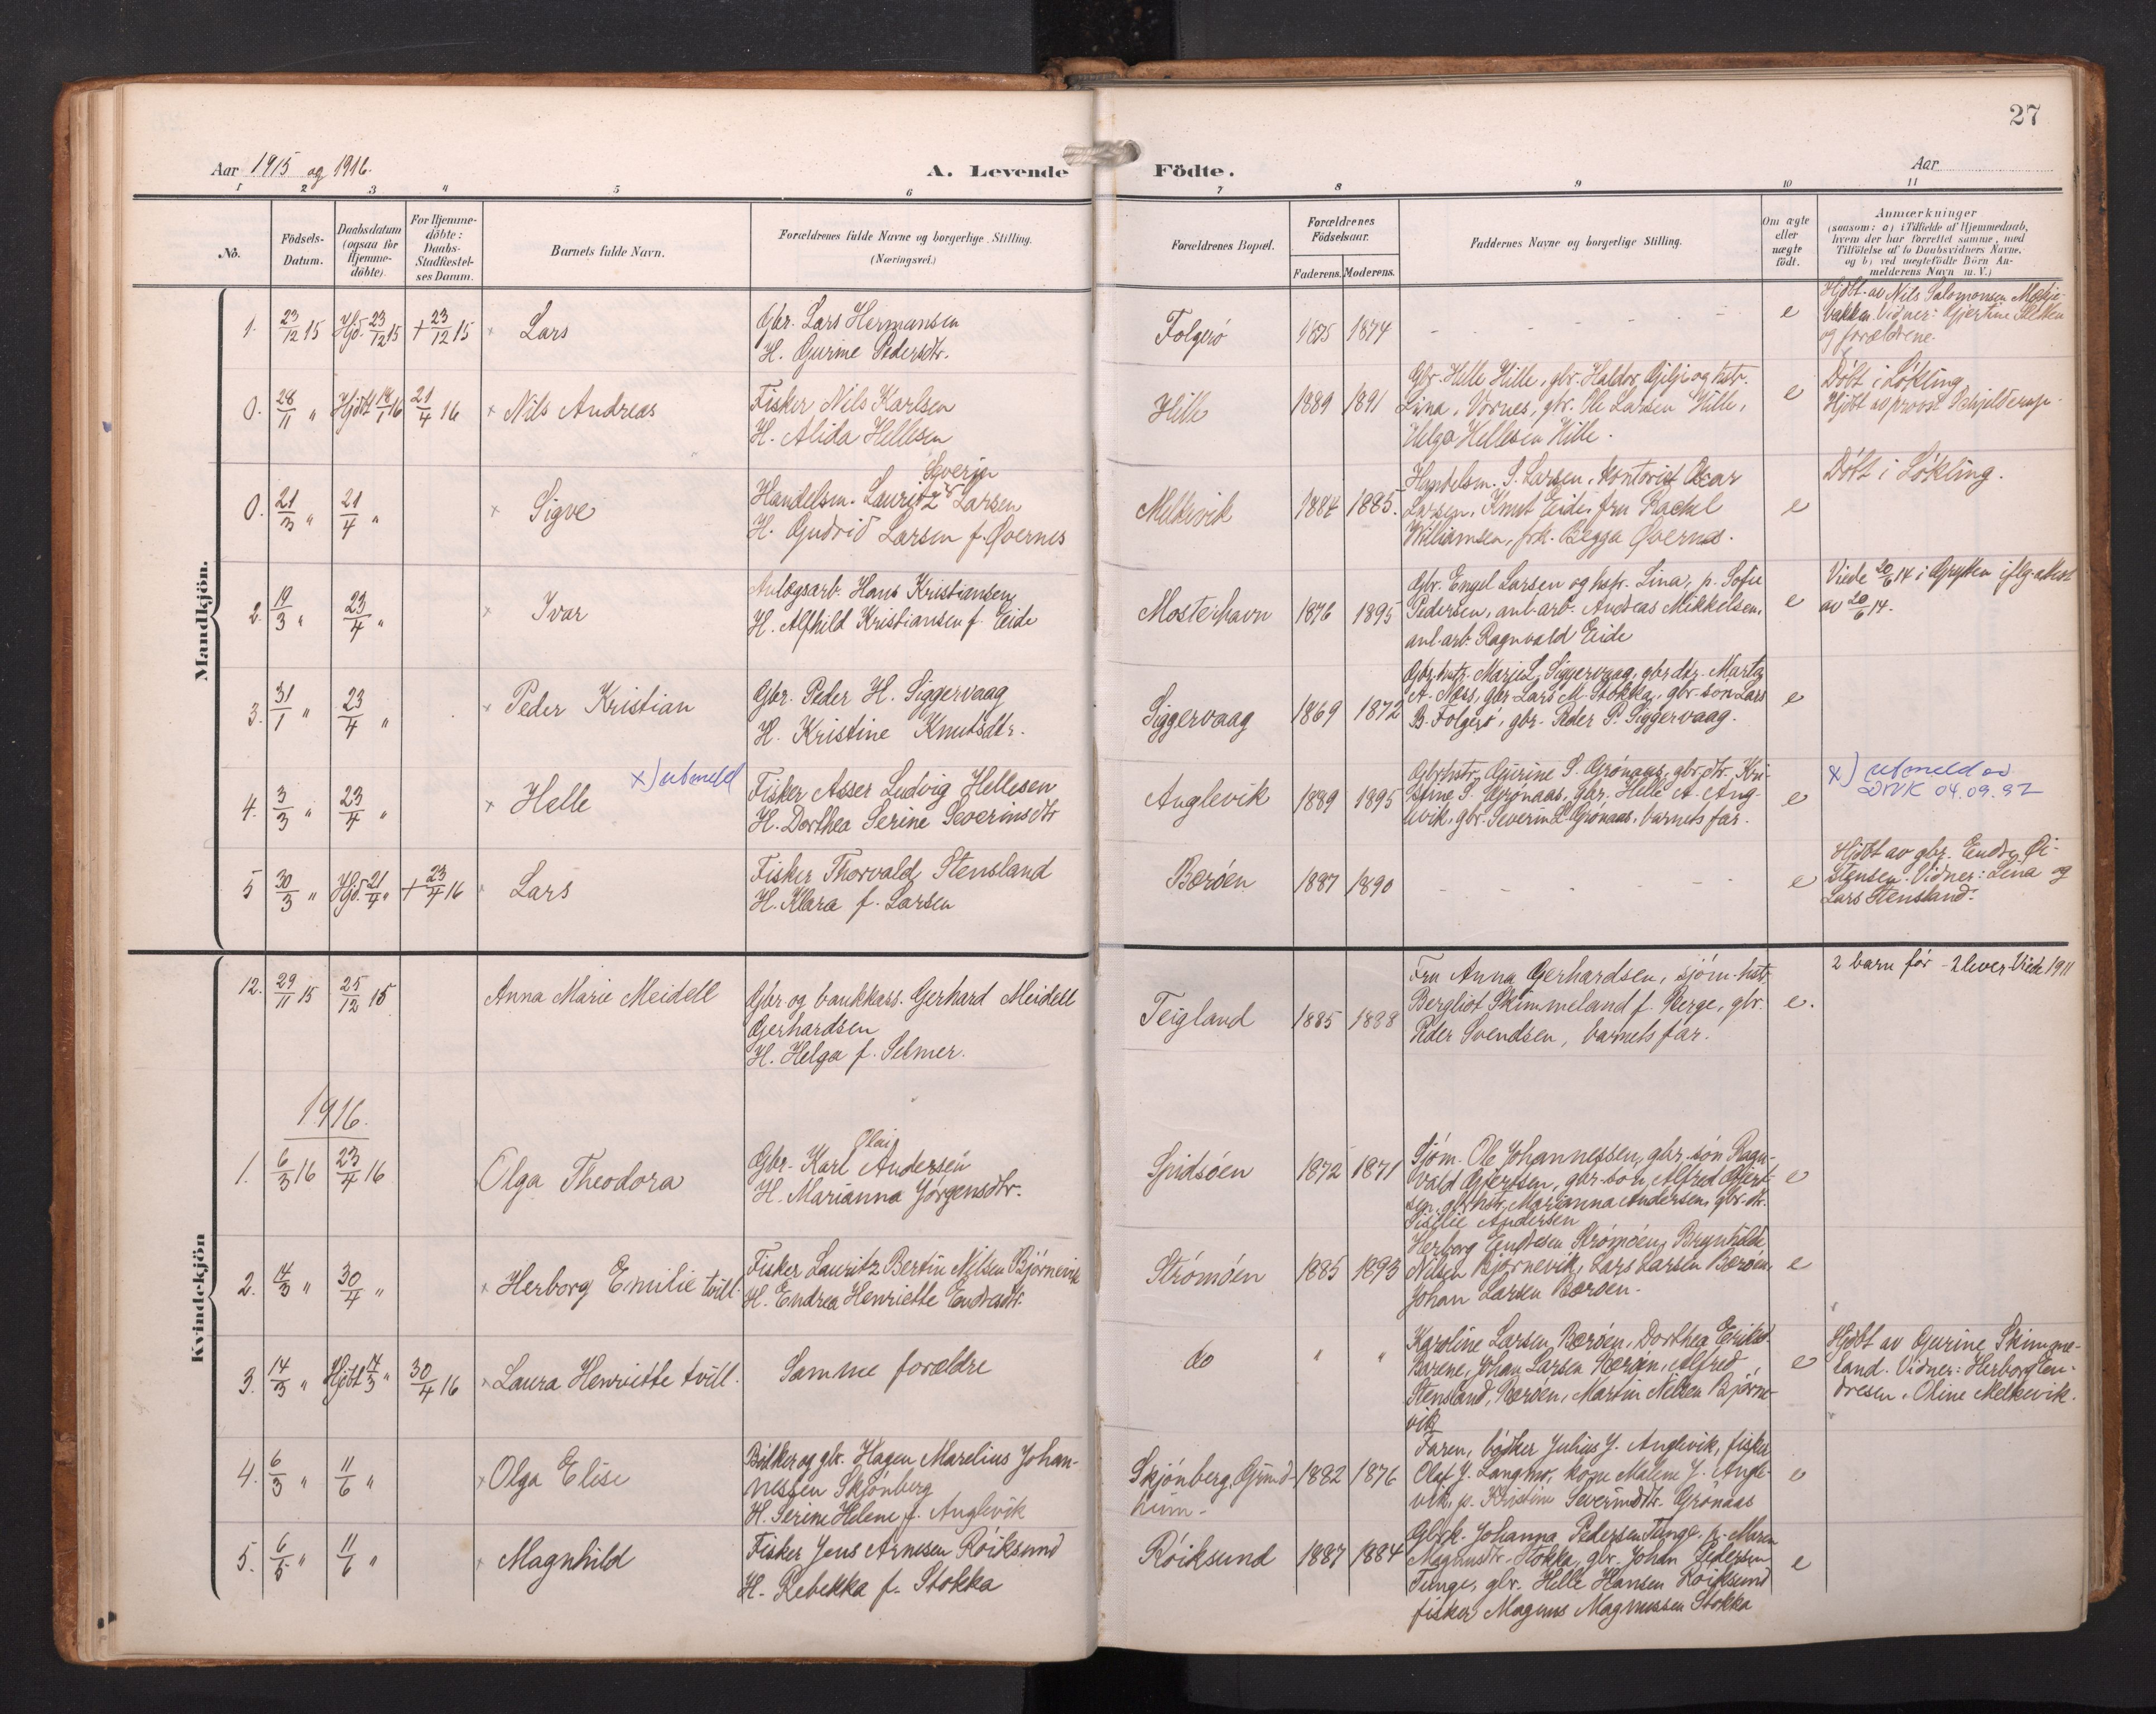 27
Aar 1915 og 1916.
A. Levende Födte.
Aar
1 2 3 4 5 6 7 8 9 10 11
No.
Födsels-Datum.
Daabsdatum (ogsaa for Hjemme-döbte)
For Hjemme-döbte: Daabs-Stadfestel-ses Datum.
Barnets fulde Navn.
Forældrenes fulde Navne og borgerlige Stilling.
(Næringsvei.)
Forældrenes Bopæl.
Forældrenes Födselsaar.
Faderens. Moderens.
Faddernes Navne og borgerlige Stilling.
Om ægte eller uægte födt.
Anmærkninger
(saasom: a) i Tilfælde af Hjemmedaab,
hvem der har forrettet samme, med
Tilföielse af to Daabsvidners Navne,
og b) ved uegtefödte Börn An-
melderens Navn m. V.)
Mandkjön.
1. 23/12 15 Hjd. 23/12 15 + 23/12 15 Lars
Gbr. Lars Hermansen
H. Gurine Pedersdtr.
Folgerö 1875 1874 e
Hjdbt. av Nils Salomonsen
Vidner: Gjertine Sletten
og forældrene.
0. 28/11 " Hjdbt 18/1 16 21/4 16 × Nils Andreas
Fisker Nils Karlsen
H. Alida Hellesen
Hille 1889 1891
Gbr. Helle Hille, gbr. Haldor Gilje og hstr.
Lina, Vornes, gbr. Ole Larsen Hille,
Helga Hellesen Hille.
e
Döbt i Lökling
Hjdbt av provst
0. 21/3 " 21/4 " × Sigve
Sverin
Handelsm. Lauritz Larsen
H. Gudrid Larsen f. Qvernes
Melkevik 1884 1885.
Handelsm. S. Larsen, kontorist Oscar
Larsen, Knut Eide, fru Rachel
Williamsen, frk. Begga Qvernes.
e
Döbt i Lökling.
2. 19/3 " 23/4 " × Ivar
Anlægsarb. Hans Kristiansen
H. Alfhild Kristiansen f. Eide
Mosterhavn 1876 1895
Gbr. Engel Larsen og hstr. Lina, p. Sofie
Pedersen, anl-arb. Andreas Mikkelsen,
anl-arb. Ragnvald Eide
e
Viede 20/6 14 i Grytten iflg. attest
av 20/6 14.
3. 31/1 " 23/4 " × Peder Kristian
Gbr. Peder H. Siggervaag
H. Kristine Knutsdtr.
Siggervaag 1869 1872
Gbr.hstr. Marie L. Siggervaag, gbr.dtr. Marta
A. Næss, gbr. Lars M. Stokka, gbr. sön Lars
B. Folgerö, gbr. Peder P. Siggervaag.
e
4. 3/3 " 23/4 " × Helle ×) utmeld
Fisker Asser Ludvig Hellesen
H. Dorthea Serine Severinsdtr
Anglevik 1889 1895
Gbrhstr. Gurine S. Grönaas, gbr.dtr. Kri-
stine S. Grönaas, gbr. Helle A. Ang-
levik, gbr. Severin L. Grönaas, barnets far.
e
×) utmeld av
DNK 04.09.92
5 30/3 " Hjd. 21/4 " + 23/4 16 Lars
Fisker Thorvald Stensland
H. Klara f. Larsen
Beröen 1887 1890 e
Hjdbt av gbr. Endre Öi-
stensen. Vidner: Lina og
Lars Stensland.
Kvindekjön
12. 29/11 15 25/12 15 Anna Marie Meidell
Gbr og bankkass. Gerhard Meidell
Gerhardsen
H. Helga f. Selmer.
Teigland 1885 1888
Fru Anna Gerhardsen, sjöm-hstr.
Bergliot Skimmeland f. Berge, gbr.
Peder Svendsen, barnets far.
e.
2 barn för - 2 lever. Viede 1911
1916.
1. 6/3 16 23/4 16 Olga Theodora
Olai
Gbr. Karl Andersen
H. Marianna Jörgensdtr.
Spidsöen 1872 1871
Sjöm. Ole Johannessen, gbr. sön Ragn-
vald Gjertsen, gbr-sön, Alfred Gjert-
sen, gbr.hstr. Marianna Andersen, gbr.dtr.
Andersen
e
2. 14/3 " 30/4 " × Herborg Emilie tvill.
Fisker Lauritz Bertin Nilsen Björnevik
H. Endrea Henriette Endresdtr.
Strömöen 1885 1893
Herborg Endresen Strömöen, Brynhilde
Nilsen Björnevik, Lars Larsen Beröen,
Johan Larsen Beröen.
e
3. 14/3 " Hjdbt 14/3 " 30/4 16 × Laura Henriette tvill.
Samme forældre
do " "
Karoline Larsen Beröen, Dorthea
Johan Larsen Beröen, Alfred
Stensland, Beröen, Martin Nilsen Björne-
vik
e
Hjdbt av Gurine Skimme-
land. Vidner: Herborg En-
dresen, Oline Melkevik.
4. 6/3 " 11/6 " × Olga Elise
Bötker og gbr. Hagen Marelius Johan-
nessen Skjönberg
H. Serine Helene f. Anglevik
Skjönberg, Grind-
heim. 1882 1876
Faren, bödker Julius J. Anglevik, fisker
Olaf J. Langmo, kone Malene J. Angle-
vik, p. Kristine Severinsdtr. Grönaas
e
5. 6/5 " 11/6 " × Magnhild
Fisker Jens Arnesen Röiksund
H. Rebekka f. Stokka
Röiksund 1887 1884
Johanna Pedersen Tunge, p. Maren
Magnusdtr. Stokka, gbr. Johan Pedersen
Tunge, gbr. Helle Hansen Röiksund
fisker Magnus Magnussen Stokka
e